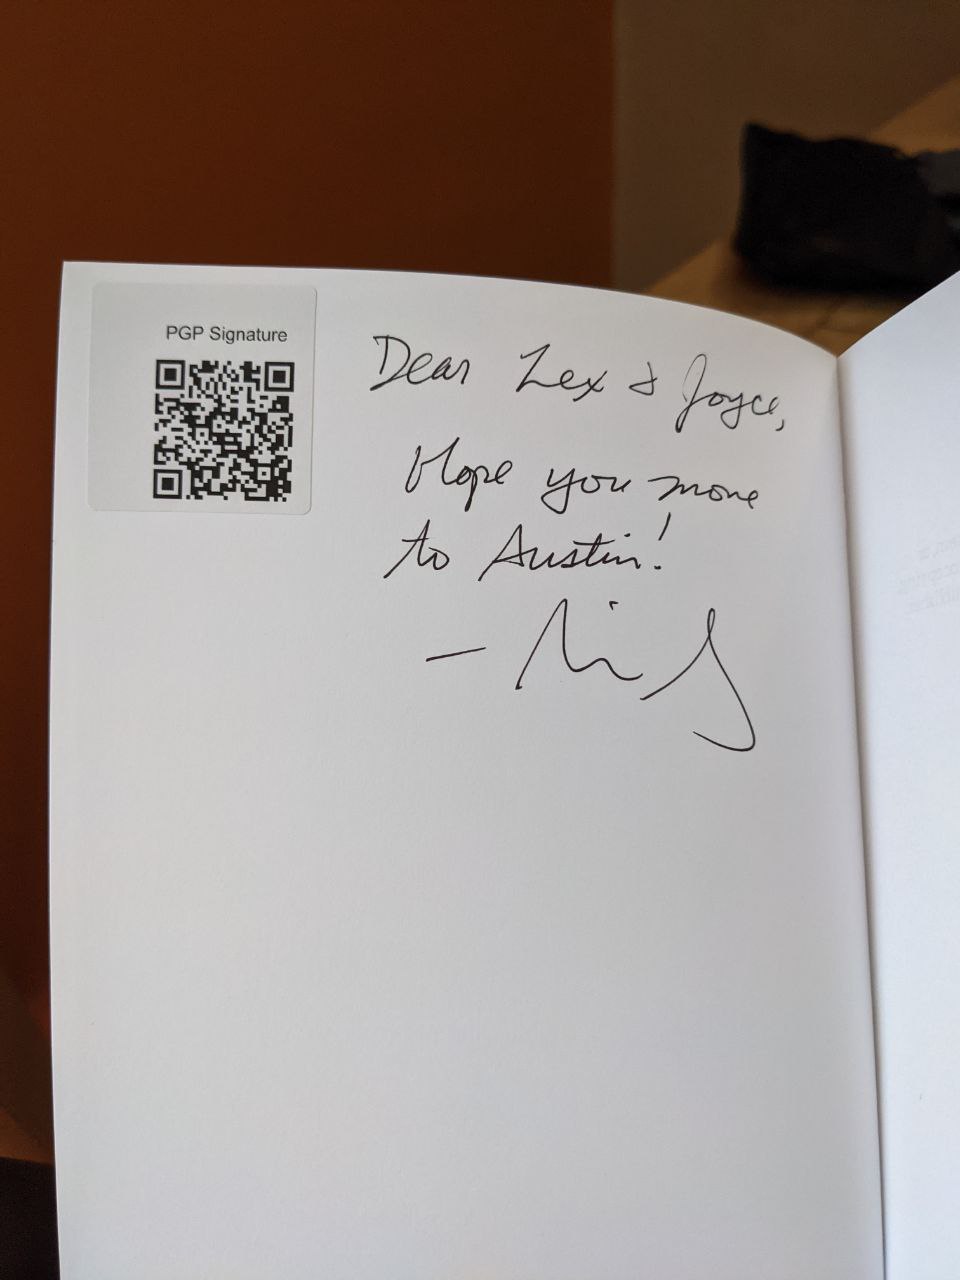 PGP Signature
Dear Lex & Joyce,
Hope you move
to Austin!
—